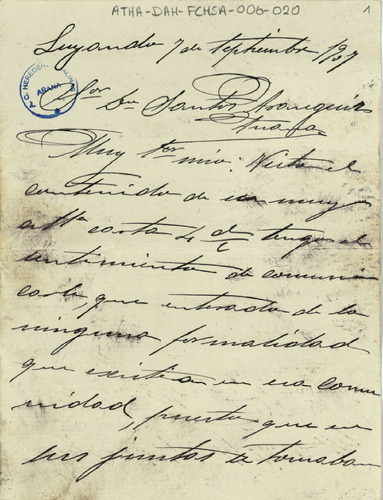 ATHA-DAH-FCHSA-006-020
1
Luyando 7 de Septiembre 1907
Sor Dn Santos
Muy Sor mio: Visto el
contenido de su muy
atta carta 4 d/c tengo el
sentimiento de comuni
carle que enterado de la
ninguna formalidad
que existe en esa comu
nidad, puesto que en
sus juntas se tomaban